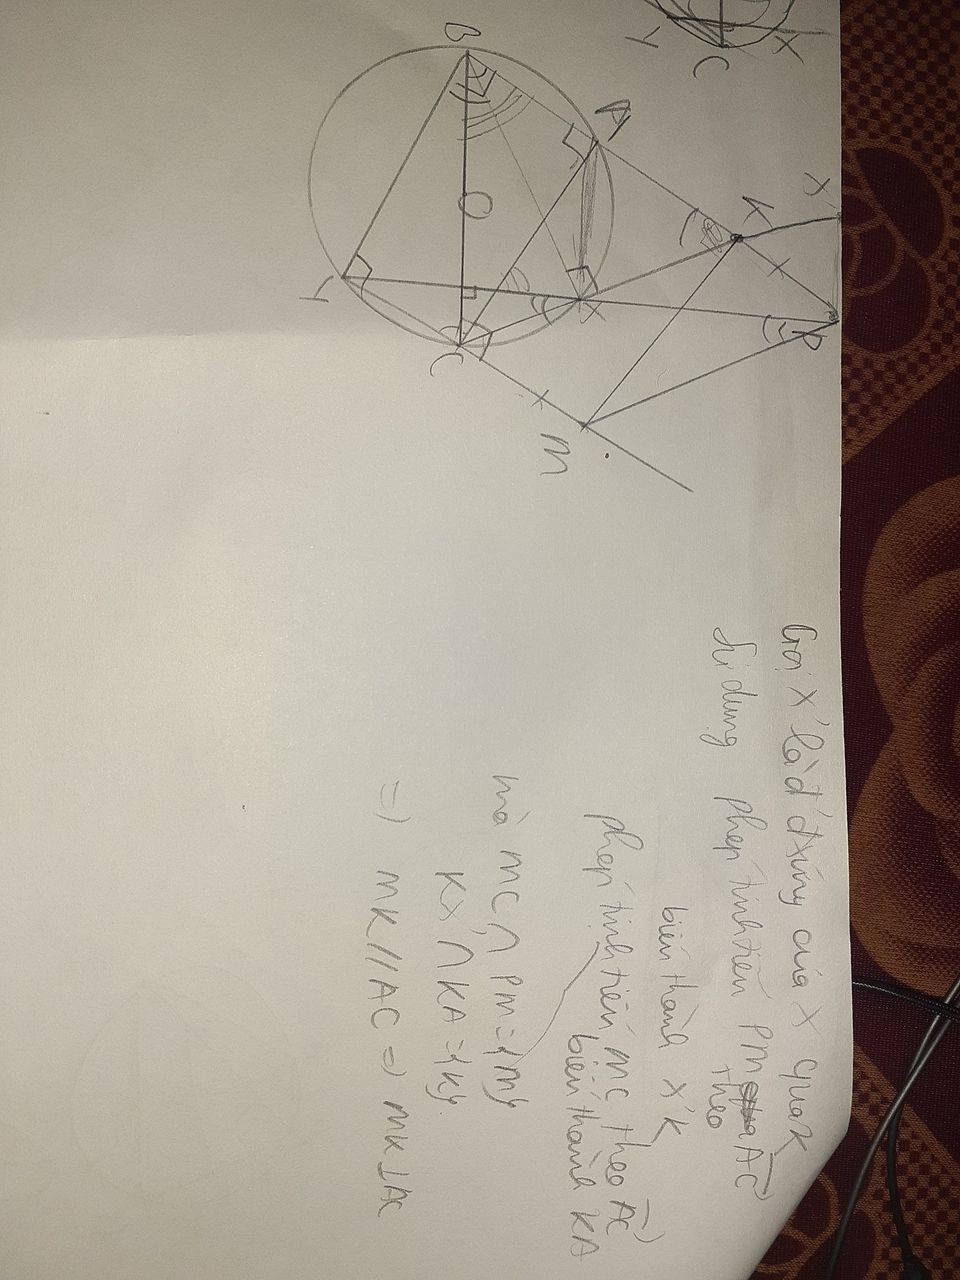 Gọi X' là đ' đxứng của X qua K
Sử dụng phép tịnh tiến PM theo AC
biến thành X'K
phép tịnh tiến MC theo AC
biến thành KA
mà MC ∩ PM = {M}
KX' ∩ KA = {K}
=) MK // AC =) MK ⊥ AC
B
A
K
X'
O
X
P
Y
C
M
Y
C
X